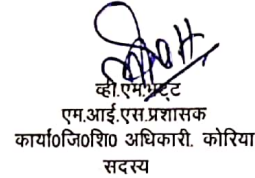 व्ही.एम.भट्ट
एम.आई.एस.प्रशासक
कार्या०जि०शि० अधिकारी. कोरिया
सदस्य